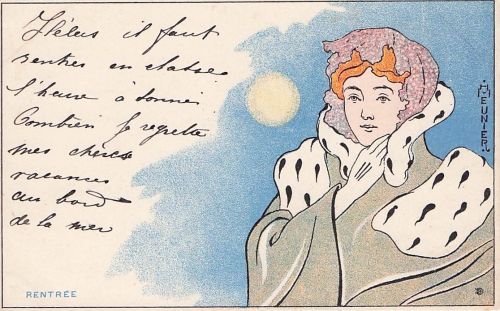 Hélas il faut
rentrer en classe
l'heure a sonné
Combien je regrette
mes chères
vacances
au bord
de la mer
RENTRÉE
MEUNIER